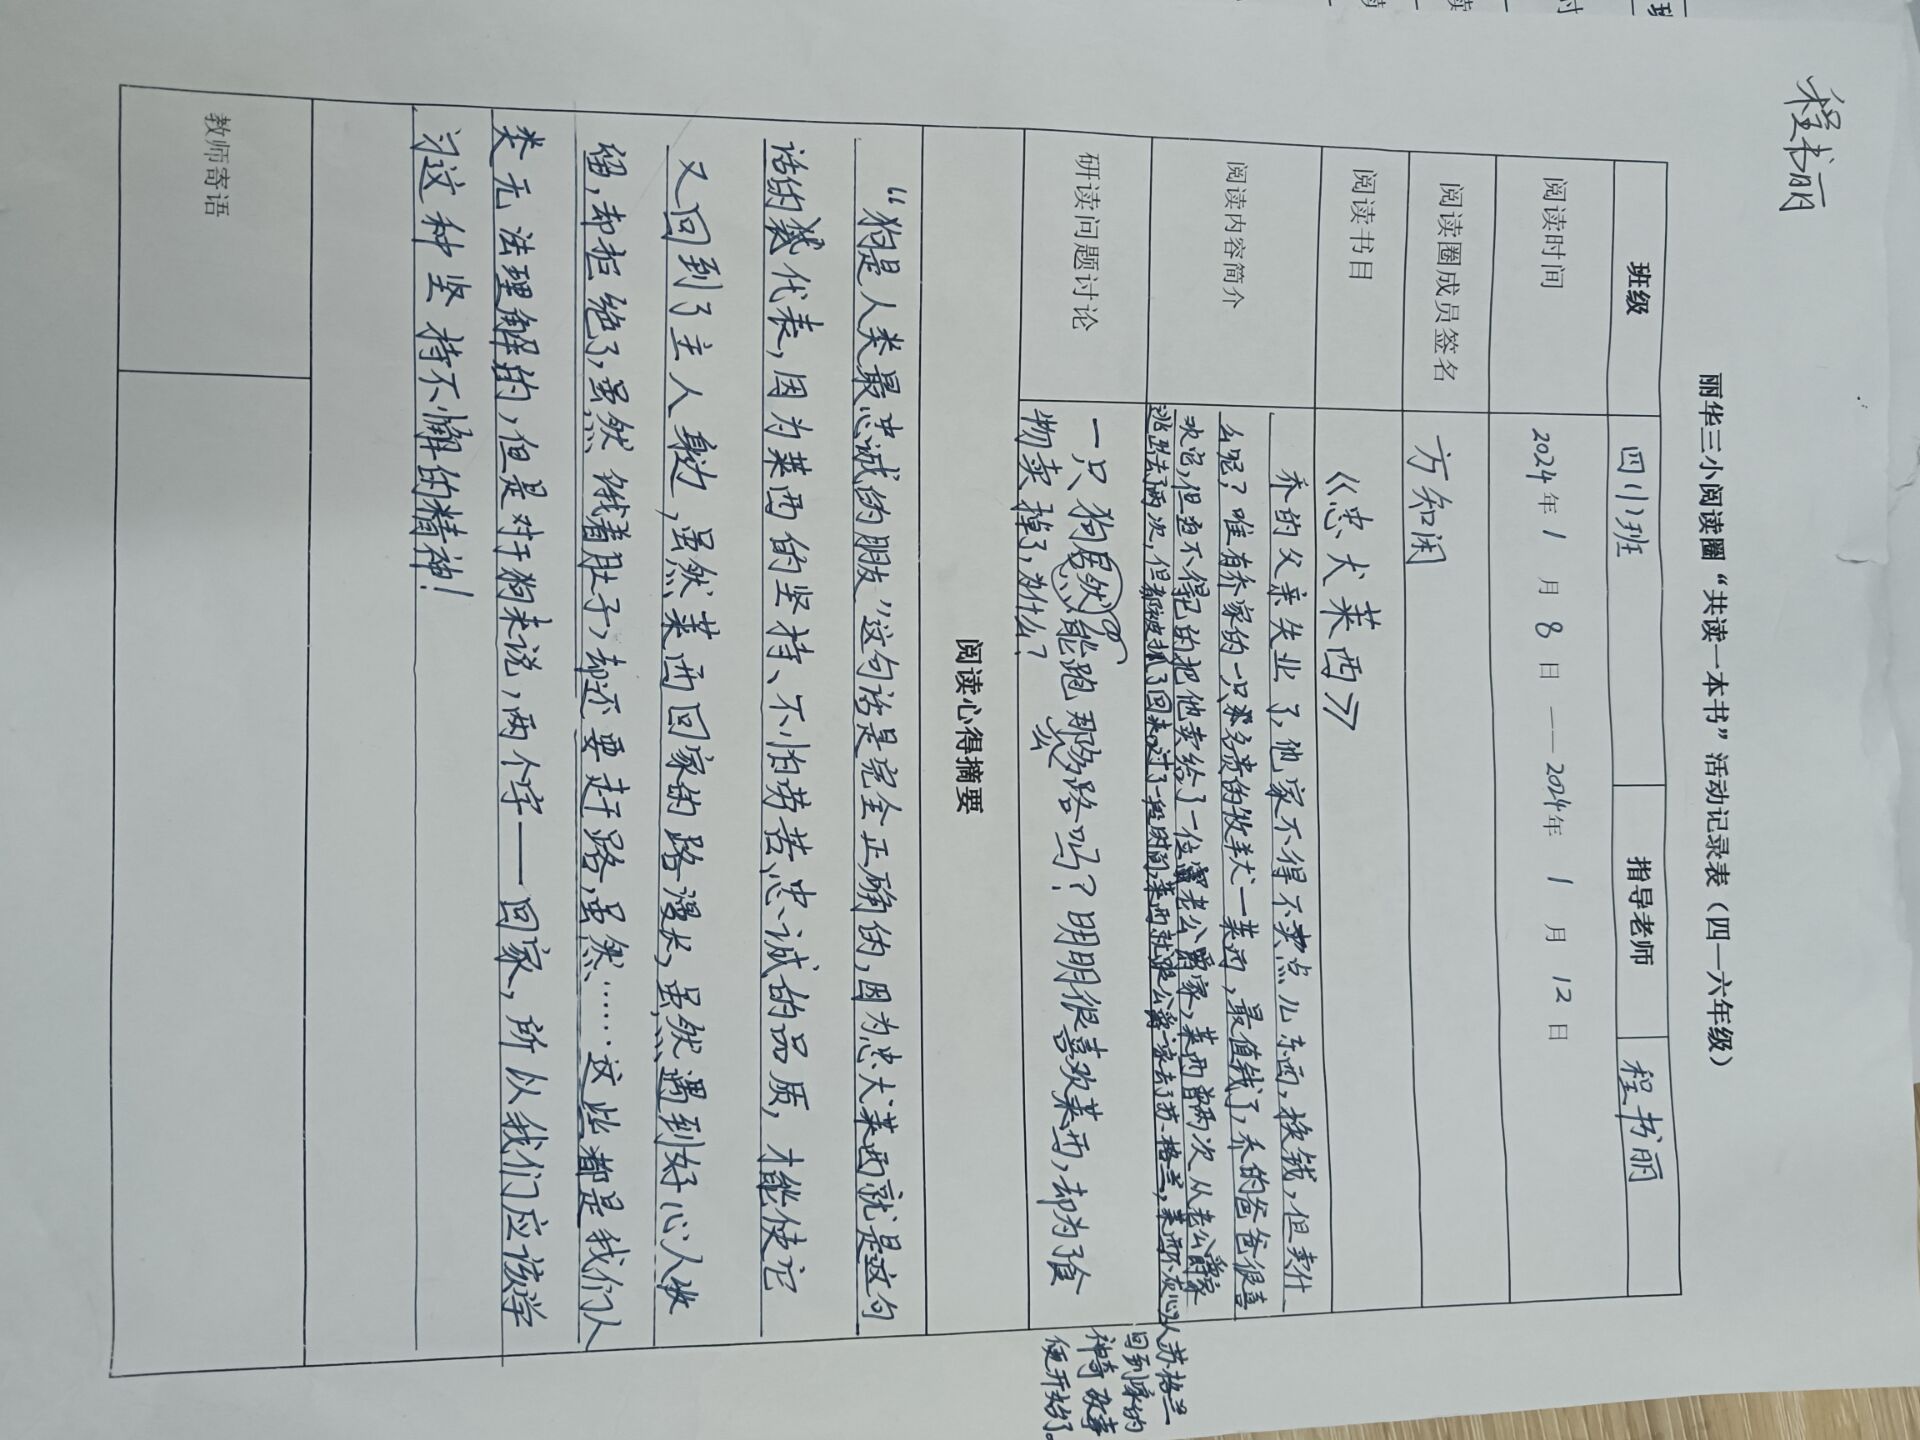 程书丽
丽华三小阅读圈“共读一本书”活动记录表（四—六年级）
班级 四(1)班 指导老师 程书丽
阅读时间 2024年1月8日——2024年1月12日
阅读圈成员签名 方知闲
阅读书目 《忠犬莱西》
阅读内容简介
乔的父亲失业了，他家不得不卖点儿东西，换钱，但卖什
么呢？唯有乔家的一只名贵的牧羊犬—莱西，最值钱了，乔的爸爸很喜
欢它，但迫不得已的把他卖给了一位富老公爵家，莱西曾两次从老公爵家
逃出去了两次，但都被抓了回来。过了一段时间，莱西就跟公爵一家去了苏格兰，莱西不灰心，从苏格兰
回到家的
神奇故事
便开始了。
研读问题讨论
一只狗居然能跑那么多路吗？明明很喜欢莱西，却为了食
物卖掉了，为什么？
阅读心得摘要
“狗是人类最忠诚的朋友”这句话是完全正确的，因为忠犬莱西就是这句
话的代表，因为莱西的坚持、不怕劳苦、忠诚的品质，才能使它
又回到了主人身边，虽然莱西回家的路漫长，虽然遇到好心人收
留，却拒绝了，虽然饿着肚子，却还要赶路，虽然……这些都是我们人
类无法理解的，但是对于狗来说，两个字——回家，所以我们应该学
习这种坚持不懈的精神！
教师寄语